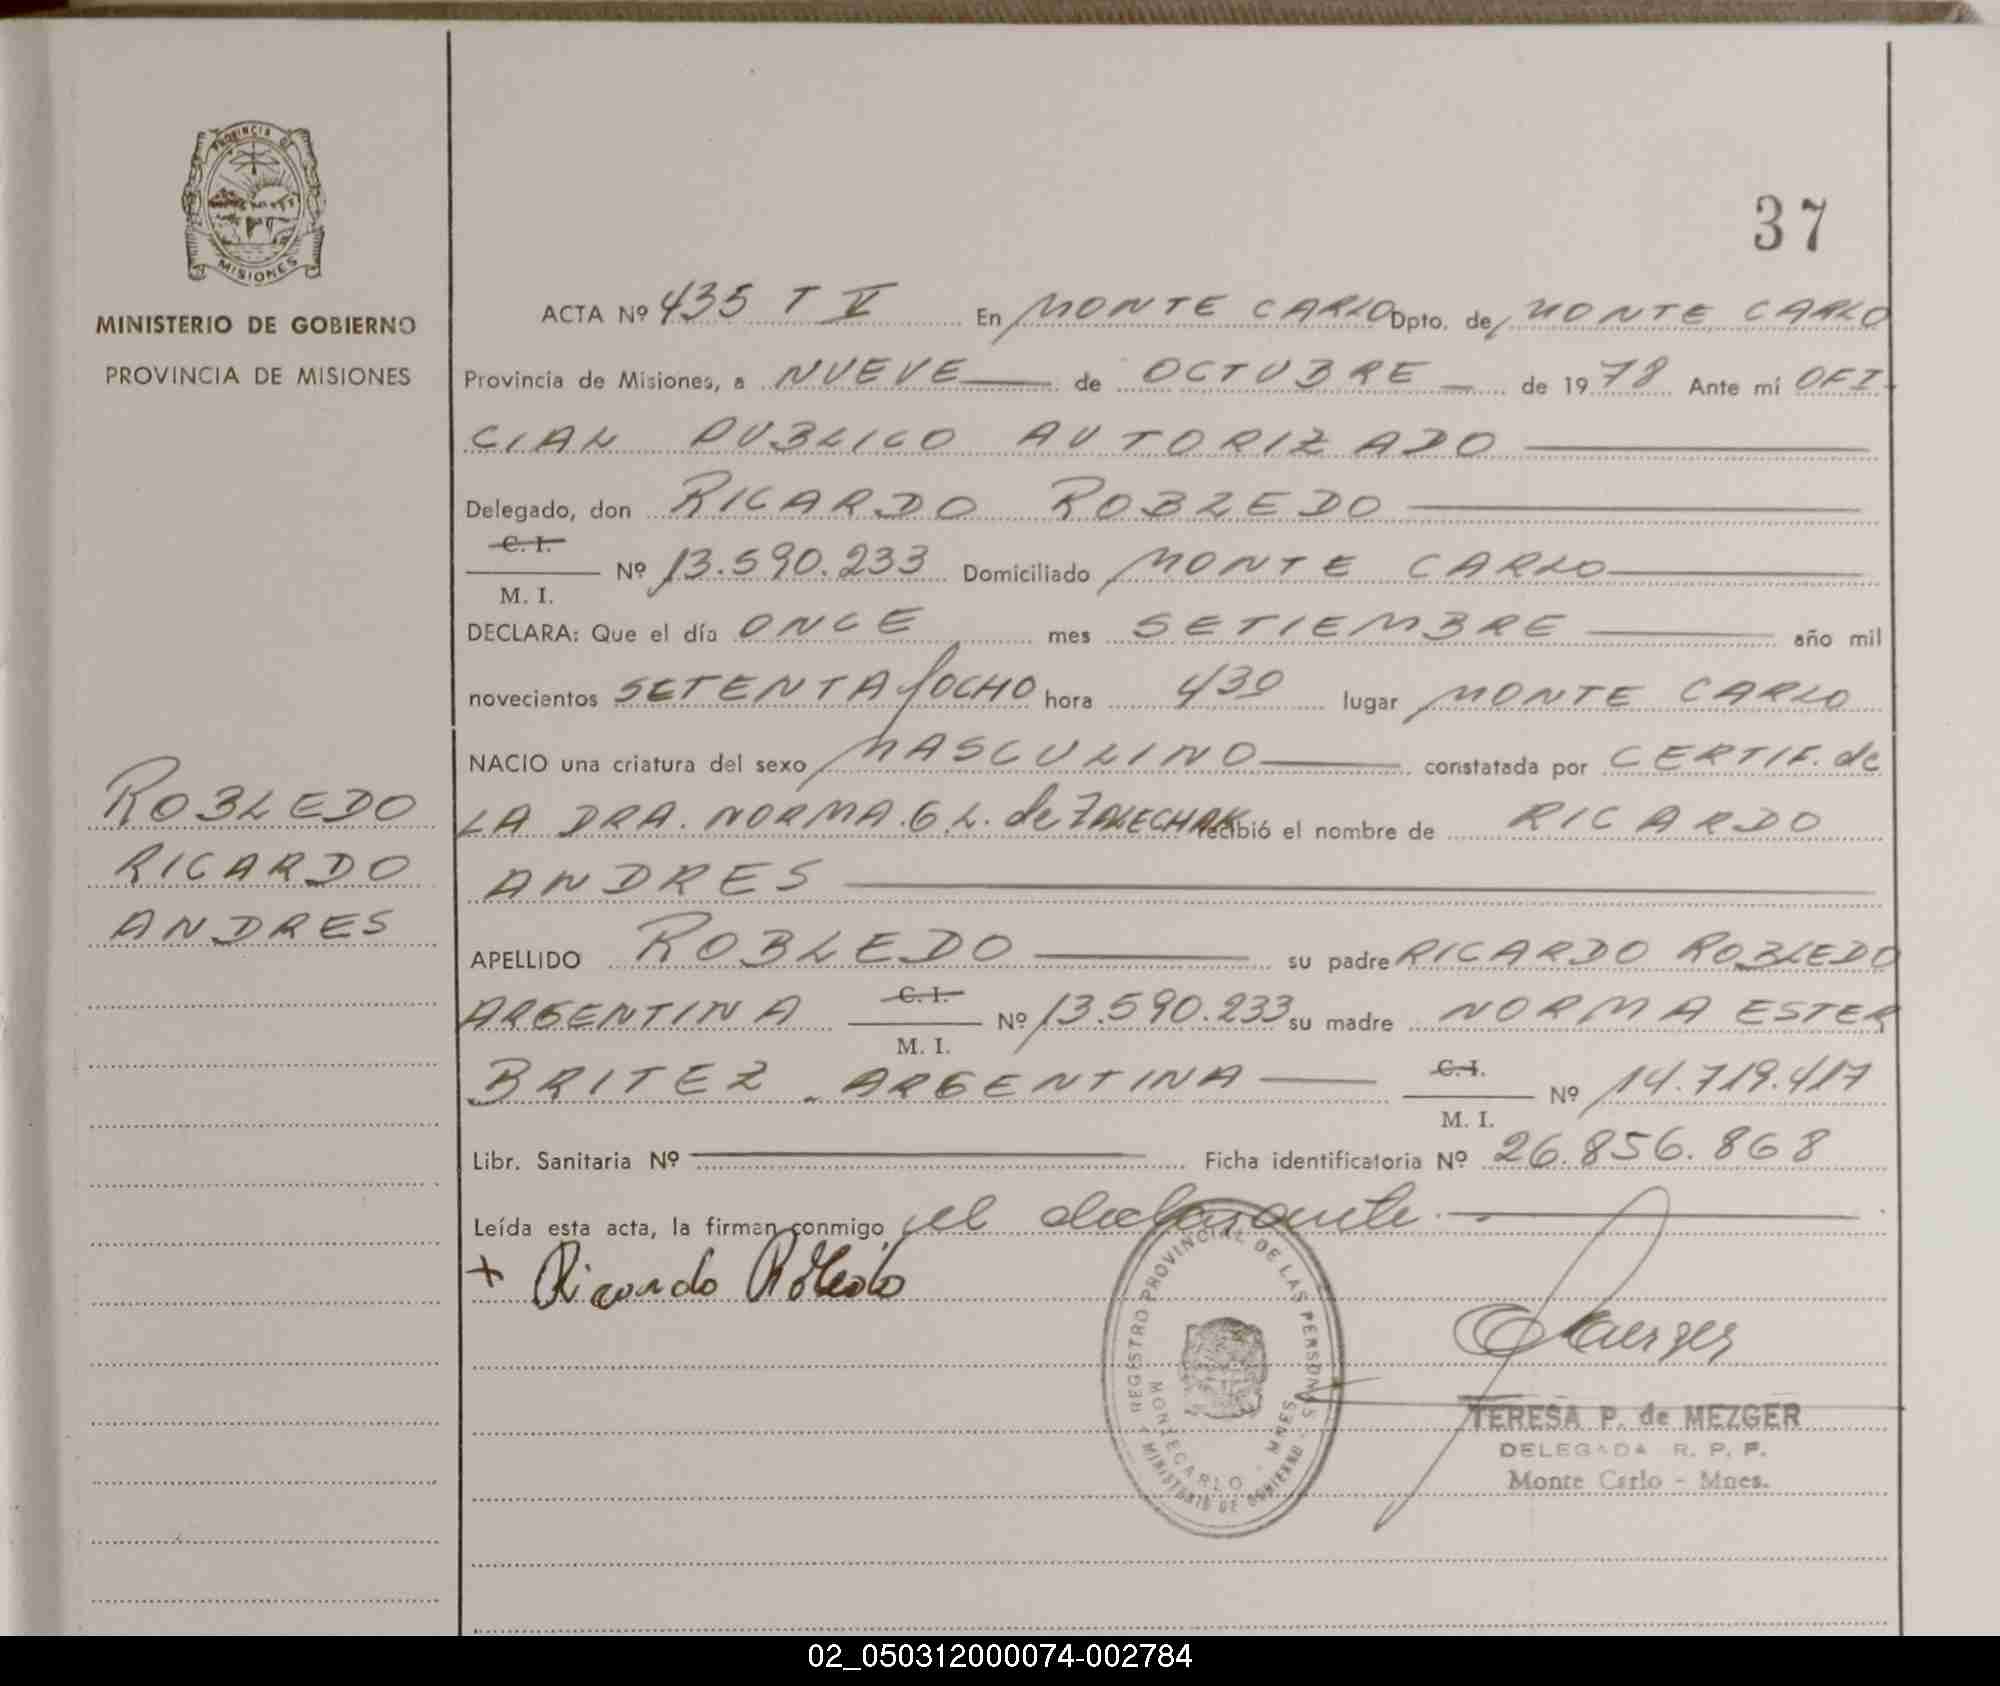 PROVINCIA DE
MISIONES
MINISTERIO DE GOBIERNO
PROVINCIA DE MISIONES
37
ACTA Nº 435 T V En MONTE CARLO Dpto. de MONTE CARLO
Provincia de Misiones, a NUEVE de OCTUBRE de 1978 Ante mí OFI-
CIAL PUBLICO AUTORIZADO
Delegado, don RICARDO ROBLEDO
C. I.
Nº 13.590.233 Domiciliado MONTE CARLO
M. I.
DECLARA: Que el día ONCE mes SETIEMBRE año mil
novecientos SETENTA y OCHO hora 430 lugar MONTE CARLO
NACIO una criatura del sexo MASCULINO constatada por CERTIF. de
LA DRA. NORMA. G. L. de ZALECHAK recibió el nombre de RICARDO
ANDRES
ROBLEDO
RICARDO
ANDRES
APELLIDO ROBLEDO su padre RICARDO ROBLEDO
C. I.
ARGENTINA Nº 13.590.233 su madre NORMA ESTER
M. I.
BRITEZ. ARGENTINA C.I. Nº 14.719.417
M. I.
Libr. Sanitaria Nº Ficha identificatoria Nº 26.856.868
Leída esta acta, la firman conmigo, el declarante
+ Ricardo Robledo
REGISTRO PROVINCIAL DE LAS PERSONAS
MONTECARLO - MNES
MINISTERIO DE GOBIERNO
TERESA P. de MEZGER
DELEGADA R. P. P.
Monte Carlo - Mnes.
02_050312000074-002784